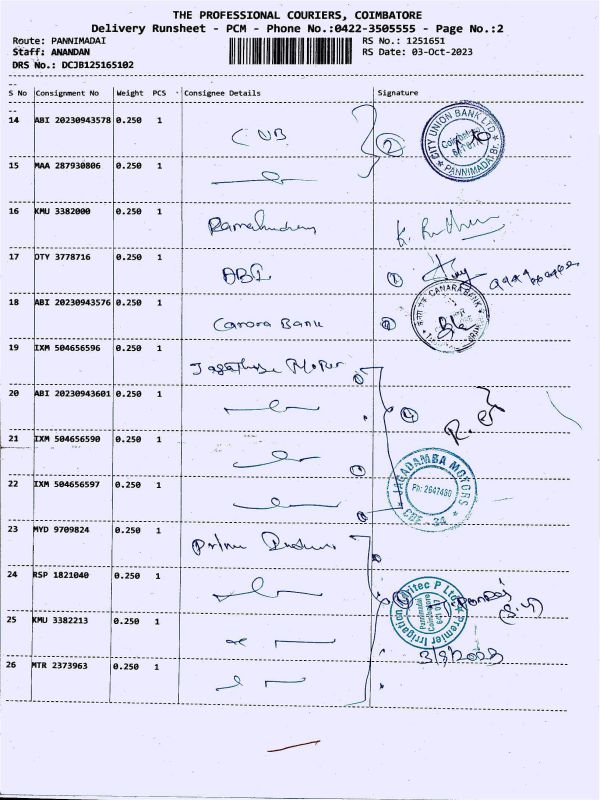 THE PROFESSIONAL COURIERS, COIMBATORE
Delivery Runsheet - PCM - Phone No.:0422-3505555 - Page No.:2
Route: PANNIMADAI
RS No.: 1251651
Staff: ANANDAN
RS Date: 03-Oct-2023
DRS No.: DCJB125165102
S No Consignment No Weight PCS Consignee Details Signature
14 ABI 20230943578 0.250 1
CUB
2
CITY UNION BANK LTD
Coimbatore
PANNIMADAI Br.
15 MAA 287930806 0.250 1
16 KMU 3382000 0.250 1
17 OTY 3778716 0.250 1
ABI
1
18 ABI 20230943576 0.250 1
Canara Bank
CANARA BANK
19 IXM 504656596 0.250 1
20 ABI 20230943601 0.250 1
4
21 IXM 504656590 0.250 1
22 IXM 504656597 0.250 1
JAGADAMBA MOTORS
Ph: 2647480
23 MYD 9709824 0.250 1
24 RSP 1821040 0.250 1
Premier Irrigation
Pannimadai
Coimbatore
25 KMU 3382213 0.250 1
26 MTR 2373963 0.250 1